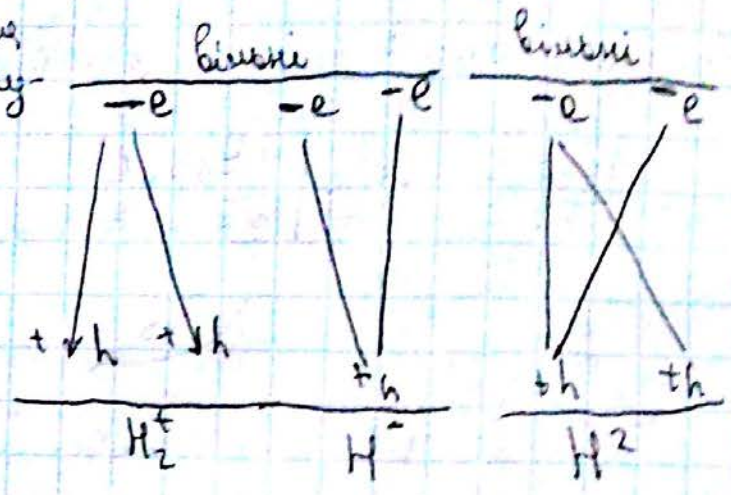 вільні вільні
-e -e -e -e -e
+ h + h +h +h +h
H₂⁺ H⁻ H²